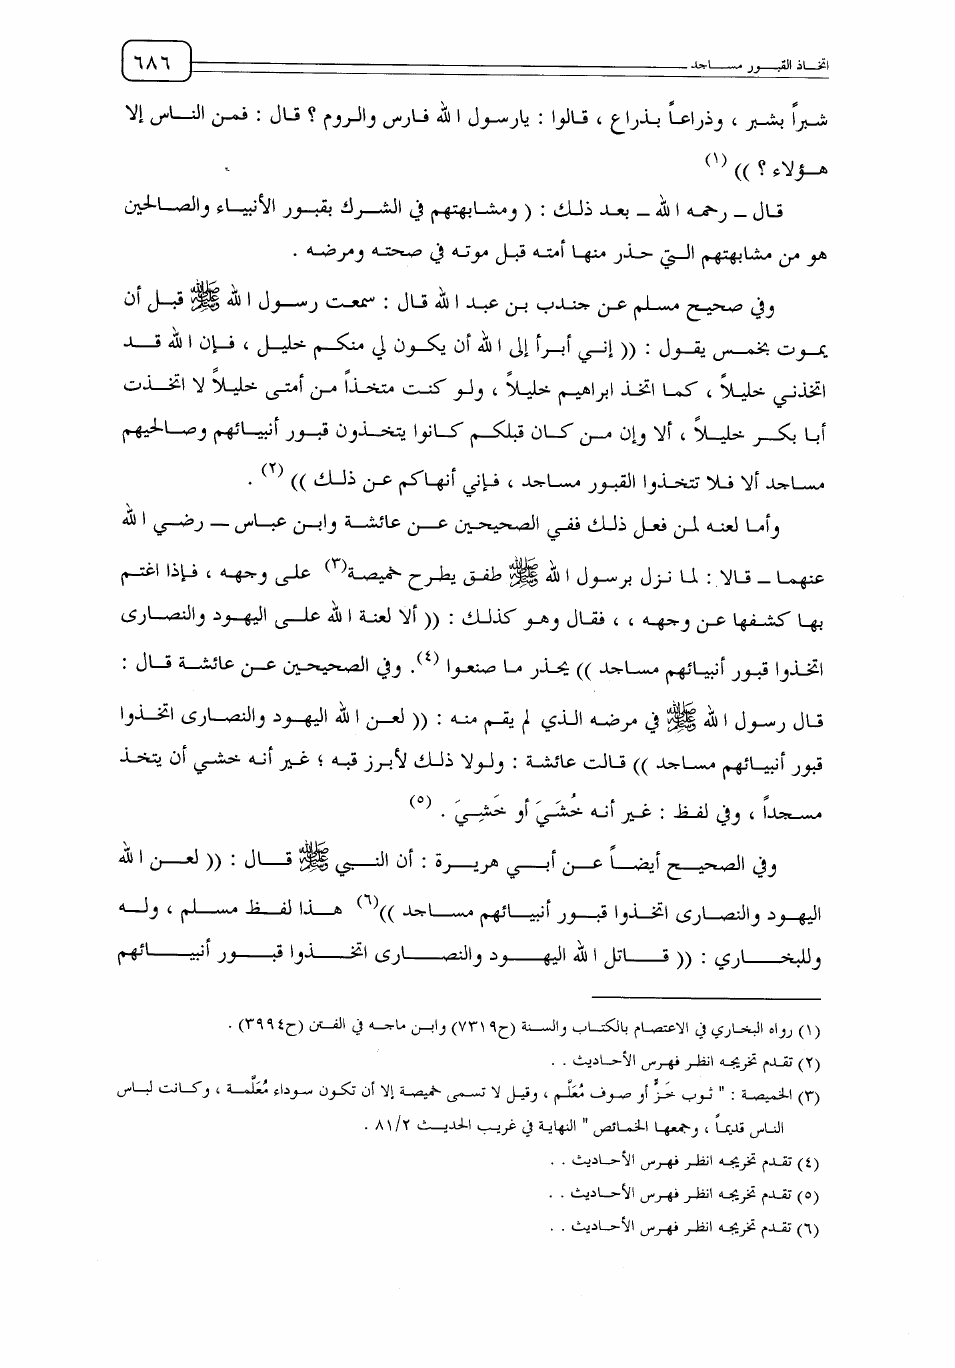 اتخاذ القبور مساجد ٦٨٦
شبراً بشبر ، وذراعاً بذراع ، قالوا : يارسول الله فارس والروم ؟ قال : فمن الناس إلا
هؤلاء ؟ )) (١)
قال ـ رحمه الله ـ بعد ذلك : ( ومشابهتهم في الشرك بقبور الأنبياء والصالحين
هو من مشابهتهم التي حذر منها أمته قبل موته في صحته ومرضه .
وفي صحيح مسلم عن جندب بن عبد الله قال : سمعت رسول الله ﷺ قبل أن
يموت بخمس يقول : (( إني أبرأ إلى الله أن يكون لي منكم خليل ، فإن الله قد
اتخذني خليلاً ، كما اتخذ ابراهيم خليلاً ، ولو كنت متخذاً من أمتى خليلاً لا اتخذت
أبا بكر خليلاً ، ألا وإن من كان قبلكم كانوا يتخذون قبور أنبيائهم وصالحيهم
مساجد ألا فلا تتخذوا القبور مساجد ، فإني أنهاكم عن ذلك )) (٢) .
وأما لعنه لمن فعل ذلك ففي الصحيحين عن عائشة وابن عباس ـ رضي الله
عنهما ـ قالا : لما نزل برسول الله ﷺ طفق يطرح خميصة(٣) على وجهه ، فإذا اغتم
بها كشفها عن وجهه ، ، فقال وهو كذلك : (( ألا لعنة الله على اليهود والنصارى
اتخذوا قبور أنبيائهم مساجد )) يحذر ما صنعوا (٤). وفي الصحيحين عن عائشة قال :
قال رسول الله ﷺ في مرضه الذي لم يقم منه : (( لعن الله اليهود والنصارى اتخذوا
قبور أنبيائهم مساجد )) قالت عائشة : ولولا ذلك لأبرز قبه ؛ غير أنه خشي أن يتخذ
مسجداً ، وفي لفظ : غير أنه خُشَيَ أو خَشِيَ . (٥)
وفي الصحيح أيضاً عن أبي هريرة : أن النبي ﷺ قال : (( لعن الله
اليهود والنصارى اتخذوا قبور أنبيائهم مساجد ))(٦) هذا لفظ مسلم ، وله
وللبخاري : (( قاتل الله اليهود والنصارى اتخذوا قبور أنبيائهم
(١) رواه البخاري في الاعتصام بالكتاب والسنة (ح٧٣١٩) وابن ماجه في الفتن (ح٣٩٩٤) .
(٢) تقدم تخريجه انظر فهرس الأحاديث . .
(٣) الخميصة : " ثوب خَزٌّ أو صوف مُعَلَّم ، وقيل لا تسمى خميصة إلا أن تكون سوداء مُعَلَّمة ، وكانت لباس
الناس قديماً ، وجمعها الخمائص " النهاية في غريب الحديث ٨١/٢ .
(٤) تقدم تخريجه انظر فهرس الأحاديث . .
(٥) تقدم تخريجه انظر فهرس الأحاديث . .
(٦) تقدم تخريجه انظر فهرس الأحاديث . .